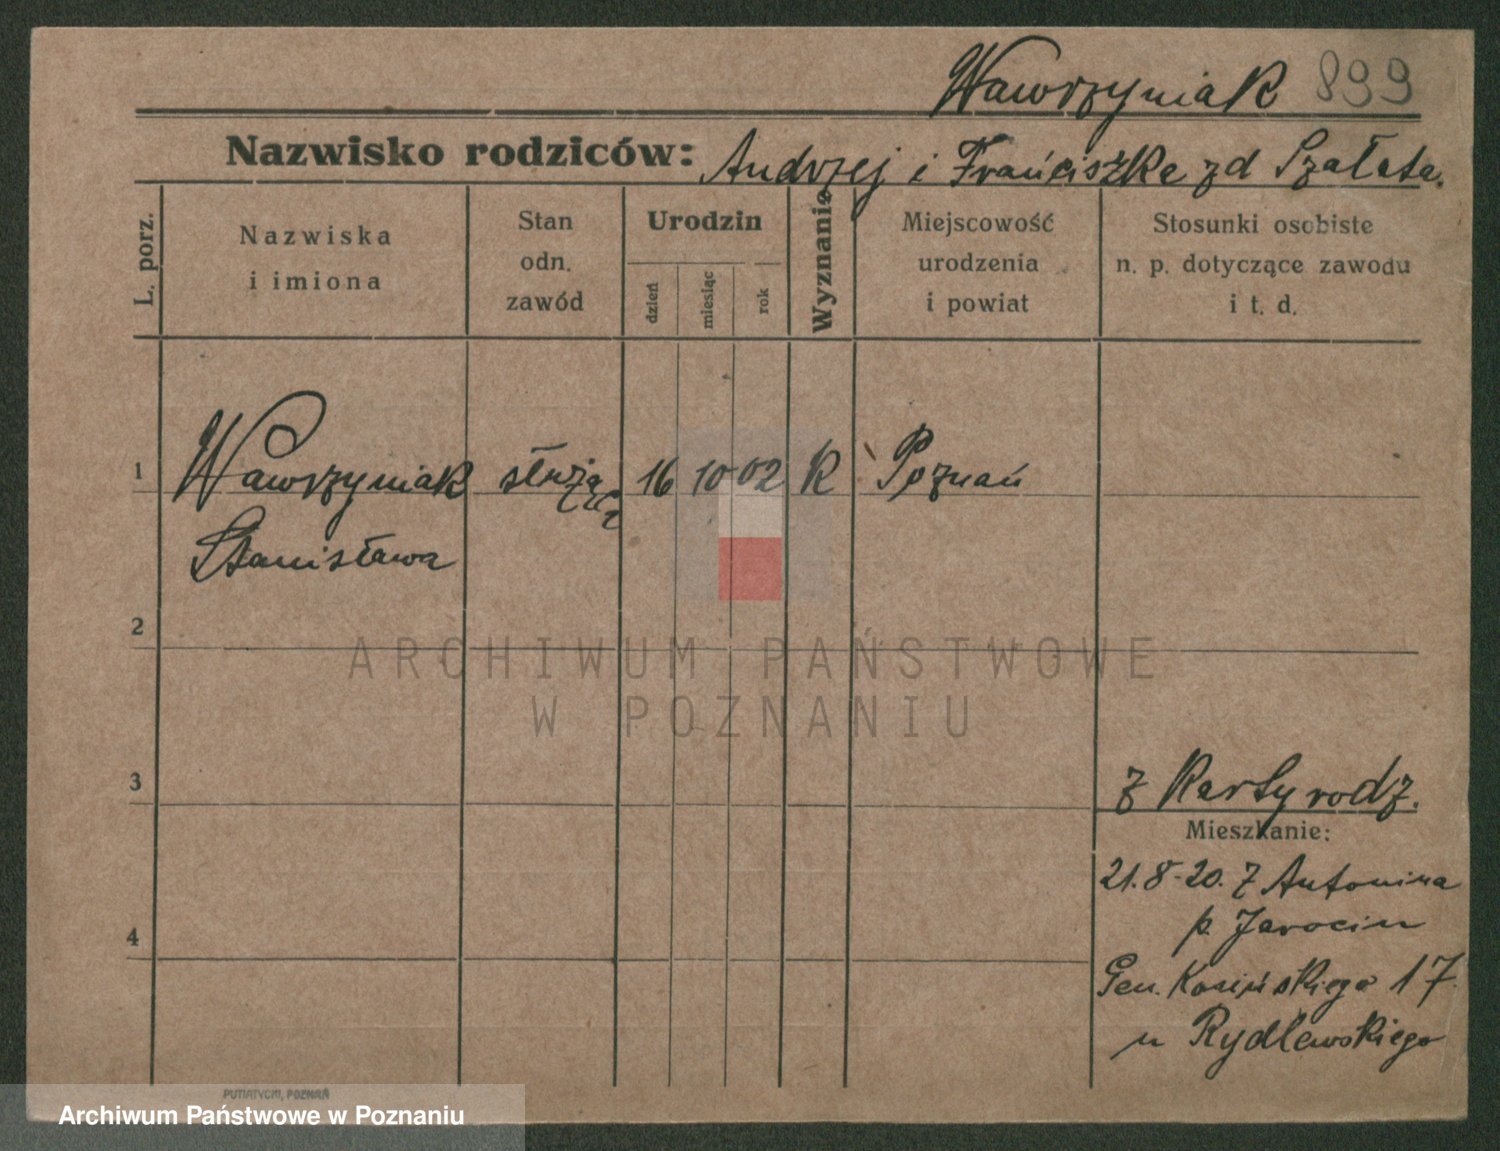 Wawrzyniak 899
Nazwisko rodziców: Andrzej i Franciszka zd Szałata.
L. porz.
Nazwiska
i imiona
Stan
odn.
zawód
Urodzin
dzień
miesiąc
rok
Wyznanie
Miejscowość
urodzenia
i powiat
Stosunki osobiste
n. p. dotyczące zawodu
i t. d.
1 Wawrzyniak służąca 16 10 02 R Poznań
Stanisława
2
ARCHIWUM PAŃSTWOWE
W POZNANIU
3
z Karty rodz.
Mieszkanie:
21.8-20. z Antonina
p. Jarocin
4
Gen. Kosińskiego 17
u Rydlewskiego
PUTIATYCKI, POZNAŃ
Archiwum Państwowe w Poznaniu